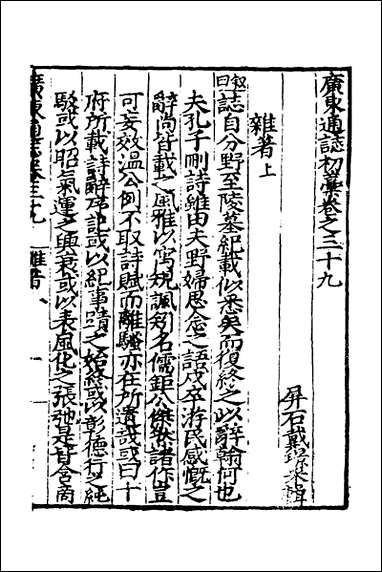 廣東通誌初藳卷之三十九
屏石戴璟采輯
雜著上
叙曰誌自分野至陵墓紀載似悉矣而復終之以辭翰何也
夫孔子刪詩雖田夫野婦思念之語戍卒游民感慨之
辭尚皆載之風雅以寓規諷矧名儒鉅公傑然諸作豈
可妄效溫公例不取詩賦而離騷亦在所遺哉或曰十
府所載詩辭碑記或以紀事蹟之始終或以彰德行之純
駁或以昭氣運之興衰或以表風化之張弛是皆含商
廣東通誌卷三十九 雜著